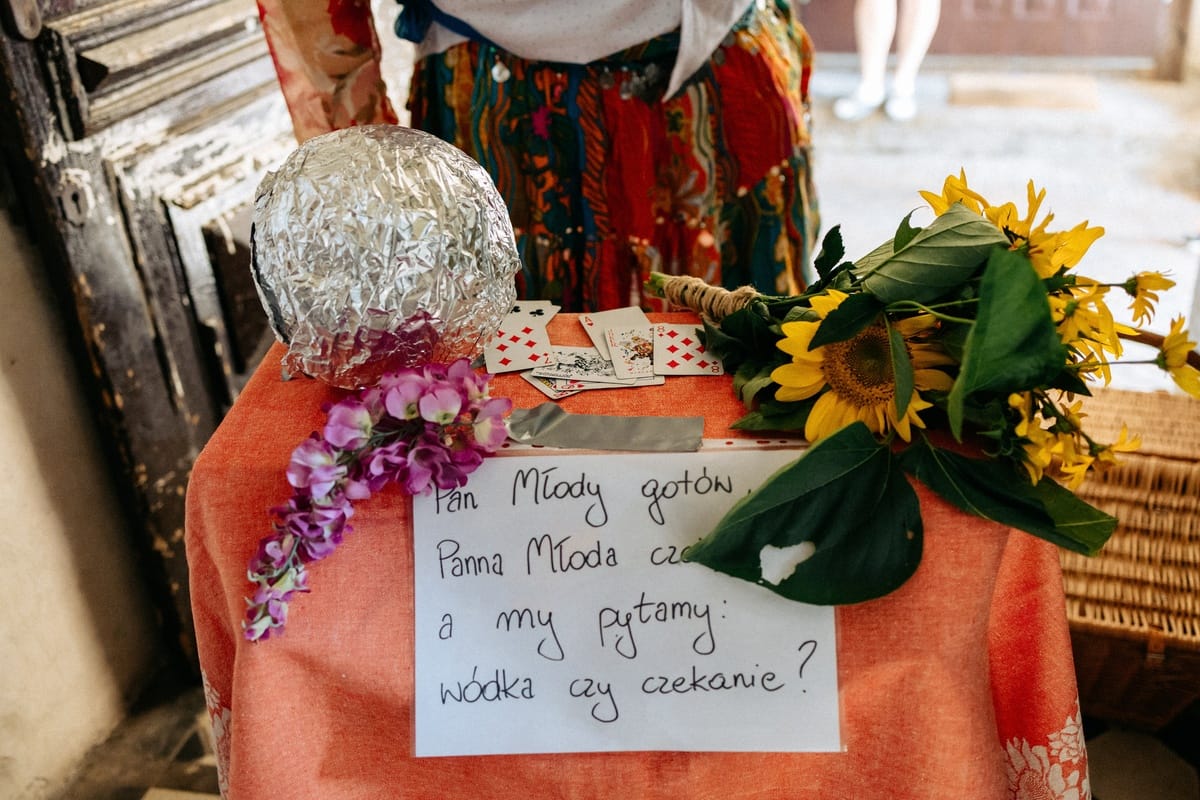 Pan Młody gotów
Panna Młoda
a my pytamy:
wódka czy czekanie?